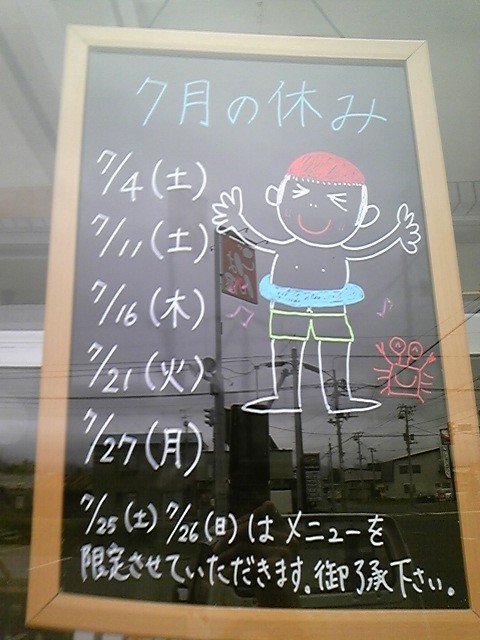 7月の休み
7/4(土)
7/11(土)
7/16(木)
7/21(火)
7/27(月)
7/25(土) 7/26(日)はメニューを
限定させていただきます。御了承下さい。